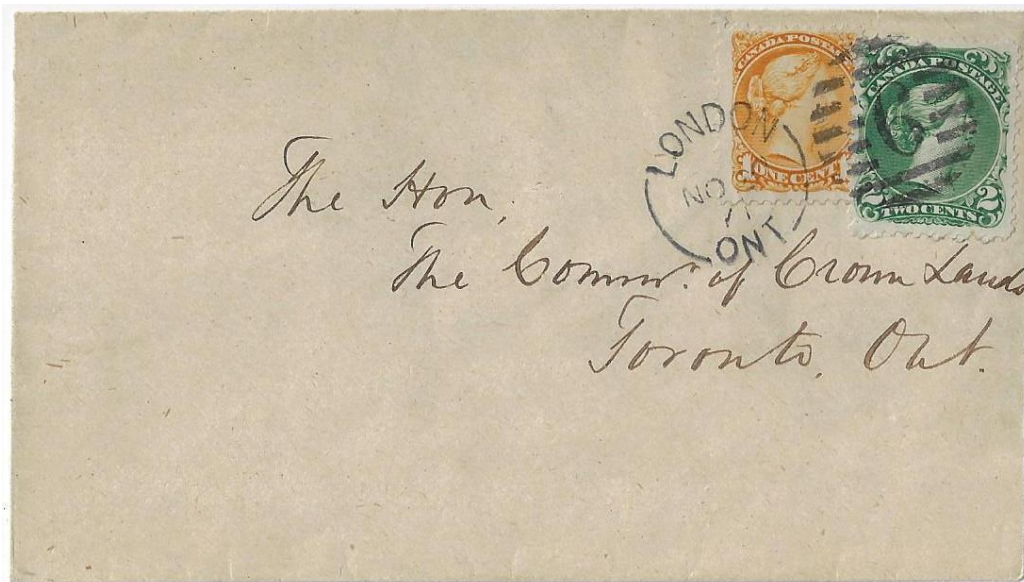 CANADA POSTAGE
ONE CENT
CANADA POSTAGE
6
2 TWO CENTS 2
LONDON
NO
ONT
The Hon,
The Commr. of Crown Lands
Toronto, Ont.